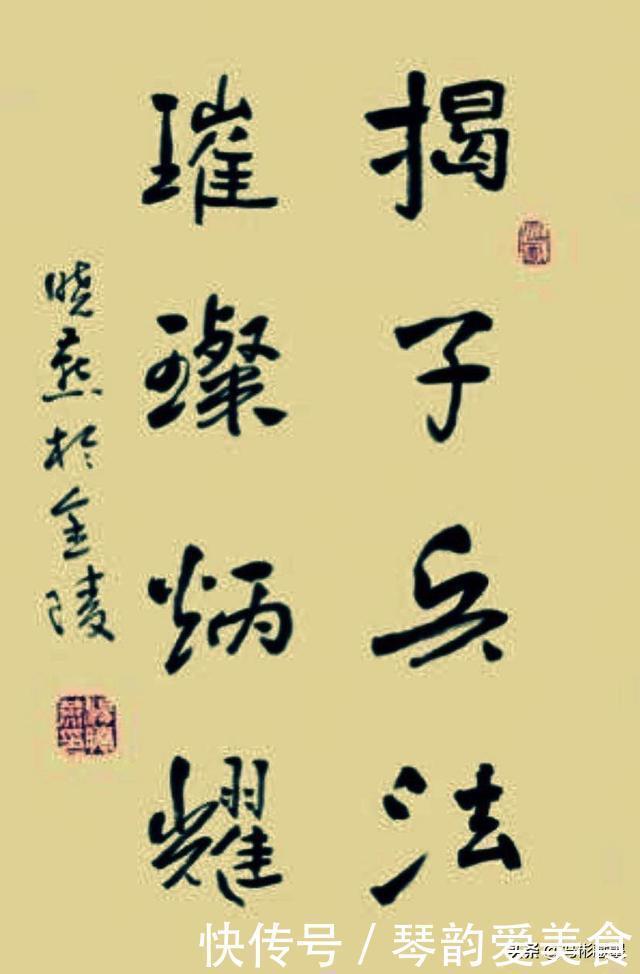 揭子兵法
璀璨炳耀
晓燕於金陵
快传号 / 琴韵爱美食